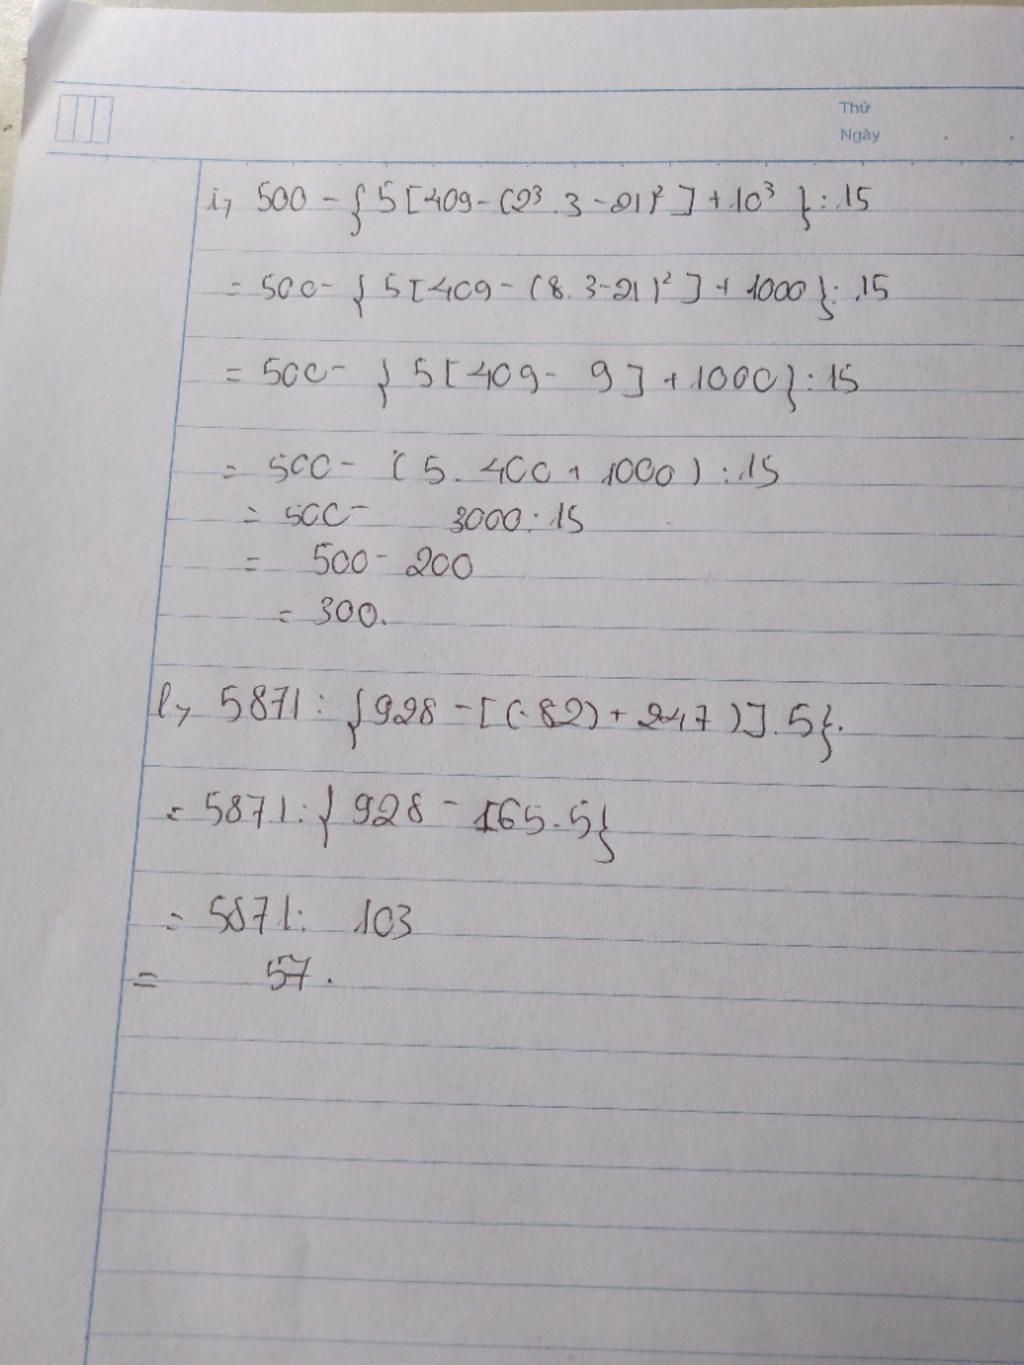 Thứ
Ngày
i, 500 - { 5 [ 409 - (2³ . 3 - 21)² ] + 10³ } : 15
= 500 - { 5 [ 409 - (8 . 3 - 21)² ] + 1000 } : 15
= 500 - { 5 [ 409 - 9 ] + 1000 } : 15
= 500 - ( 5 . 400 + 1000 ) : 15
= 500 - 3000 : 15
= 500 - 200
= 300.
l, 5871 : { 928 - [ (-82) + 247 ) ] . 5 }.
= 5871 : { 928 - 165 . 5 }
= 5871 : 103
= 57 .